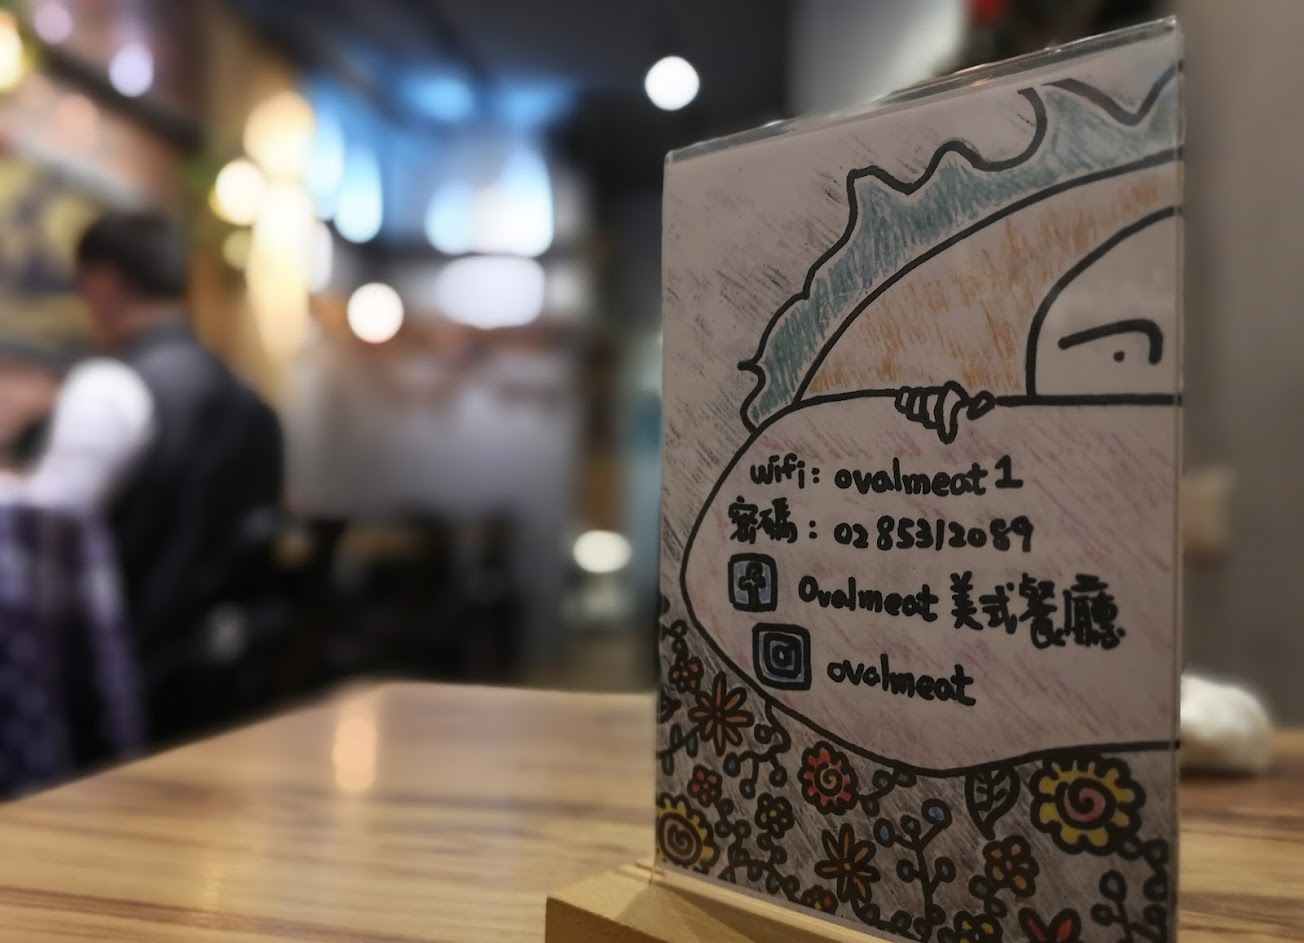 wifi: ovalmeat1
密碼: 0285312089
Ovalmeat 美式餐廳
ovalmeat